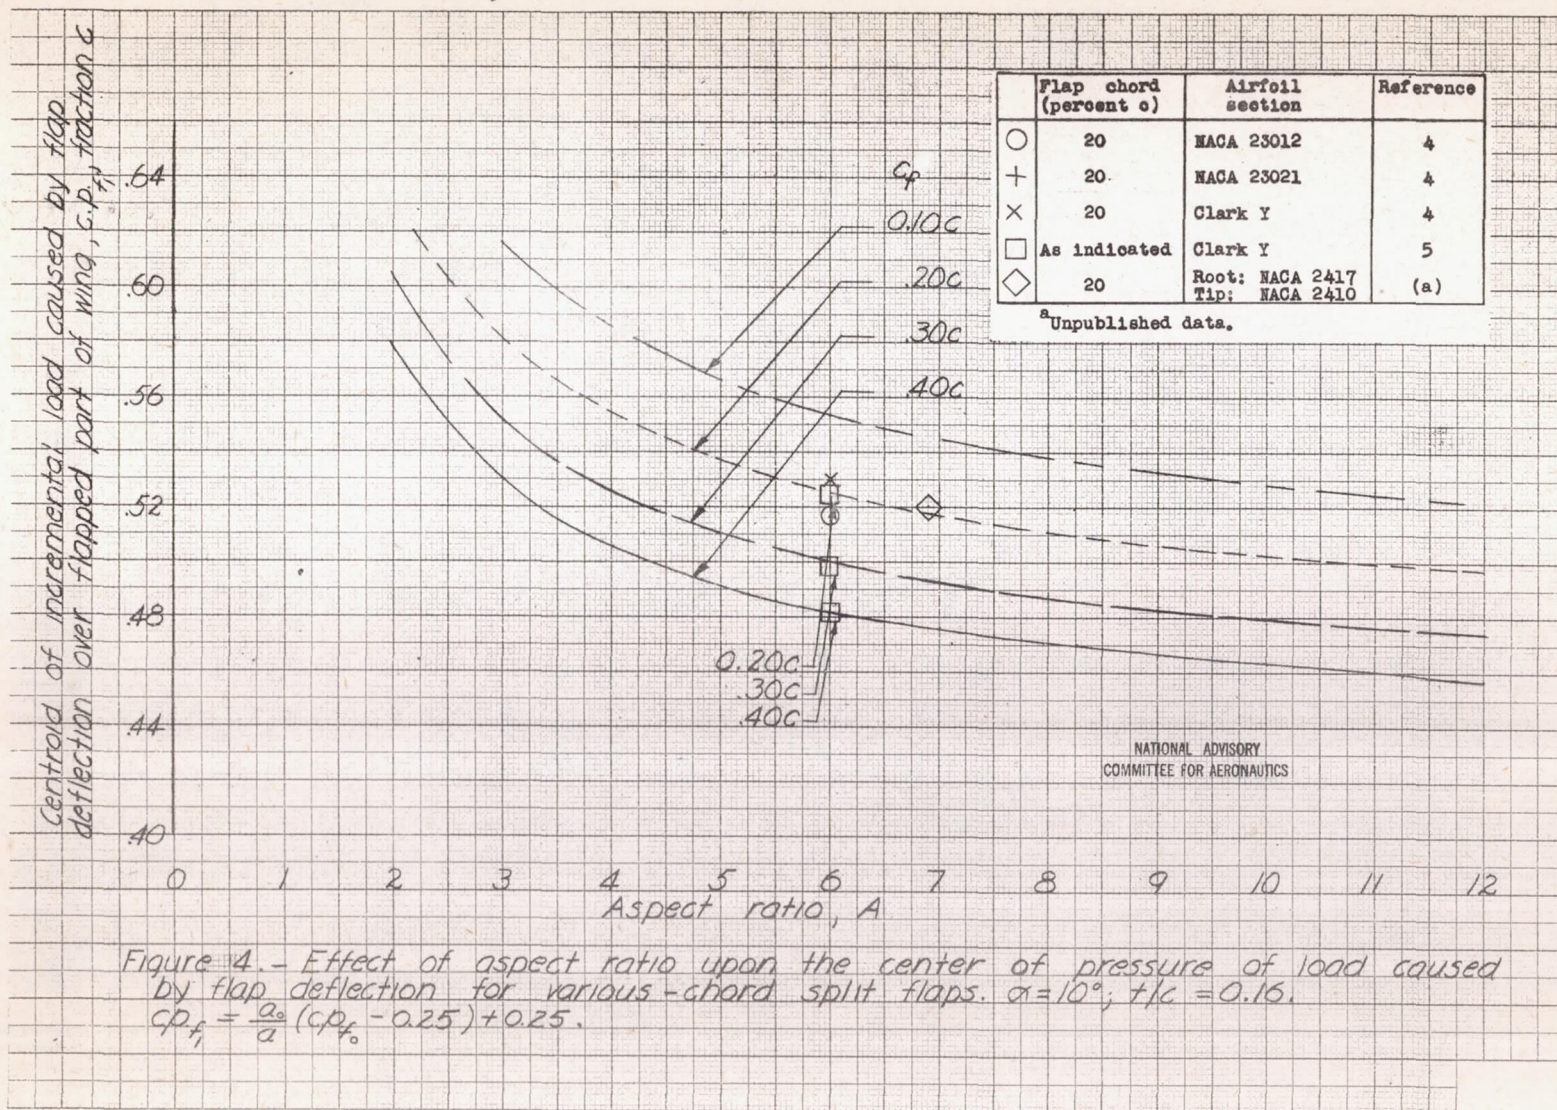 Centroid of incremental load caused by flap
deflection over flapped part of wing, c.p.f₁, fraction c
.64
.60
.56
.52
.48
.44
.40
0 1 2 3 4 5 6 7 8 9 10 11 12
Aspect ratio, A
cf
0.10c
.20c
.30c
.40c
0.20c
.30c
.40c
Flap chord (percent c) Airfoil section Reference
○ 20 NACA 23012 4
+ 20 NACA 23021 4
× 20 Clark Y 4
□ As indicated Clark Y 5
◇ 20 Root: NACA 2417 Tip: NACA 2410 (a)
ᵃUnpublished data.
NATIONAL ADVISORY
COMMITTEE FOR AERONAUTICS
Figure 4.- Effect of aspect ratio upon the center of pressure of load caused
by flap deflection for various-chord split flaps. α=10°; t/c =0.16.
cp_f₁ = a₀/a (cp_f₀ -0.25)+0.25.